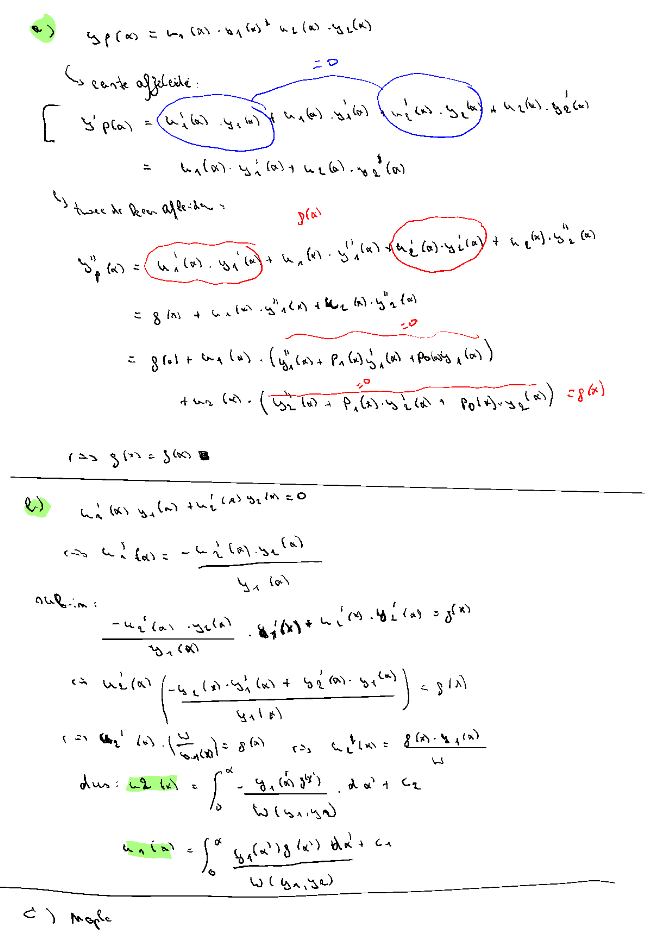 a) y_p(x) = u_1(x) · y_1(x) + u_2(x) · y_2(x)
↳ eerste afgeleide:
= 0
y'_p(x) = u_1'(x) · y_1(x) + u_1(x) · y_1'(x) + u_2'(x) · y_2(x) + u_2(x) · y_2'(x)
= u_1(x) · y_1'(x) + u_2(x) · y_2'(x)
↳ tweede keer afleiden:
g(x)
y''_p(x) = u_1'(x) · y_1'(x) + u_1(x) · y_1''(x) + u_2'(x) · y_2'(x) + u_2(x) · y_2''(x)
= g(x) + u_1(x) · y_1''(x) + u_2(x) · y_2''(x)
=0
= g(x) + u_1(x) · (y_1''(x) + P_1(x) y_1'(x) + P_0(x) y_1(x))
=0
+ u_2(x) · (y_2''(x) + P_1(x) · y_2'(x) + P_0(x) · y_2(x)) = g(x)
<=> g(x) = g(x) ■
b) u_1'(x) y_1(x) + u_2'(x) y_2(x) = 0
<=> u_1'(x) = -u_2'(x) · y_2(x) / y_1(x)
sub. in:
-u_2'(x) · y_2(x) / y_1(x) · y_1'(x) + u_2'(x) · y_2'(x) = g(x)
<=> u_2'(x) (-y_2(x) · y_1'(x) + y_2'(x) · y_1(x) / y_1(x)) = g(x)
<=> u_2'(x) · (W / y_1(x)) = g(x) <=> u_2'(x) = g(x) · y_1(x) / W
dus: u_2(x) = ∫_0^x - y_1(x') g(x') / W(y_1, y_2) · dx' + c_2
u_1(x) = ∫_0^x y_1(x') g(x') dx' / W(y_1, y_2) + c_1
c) Maple